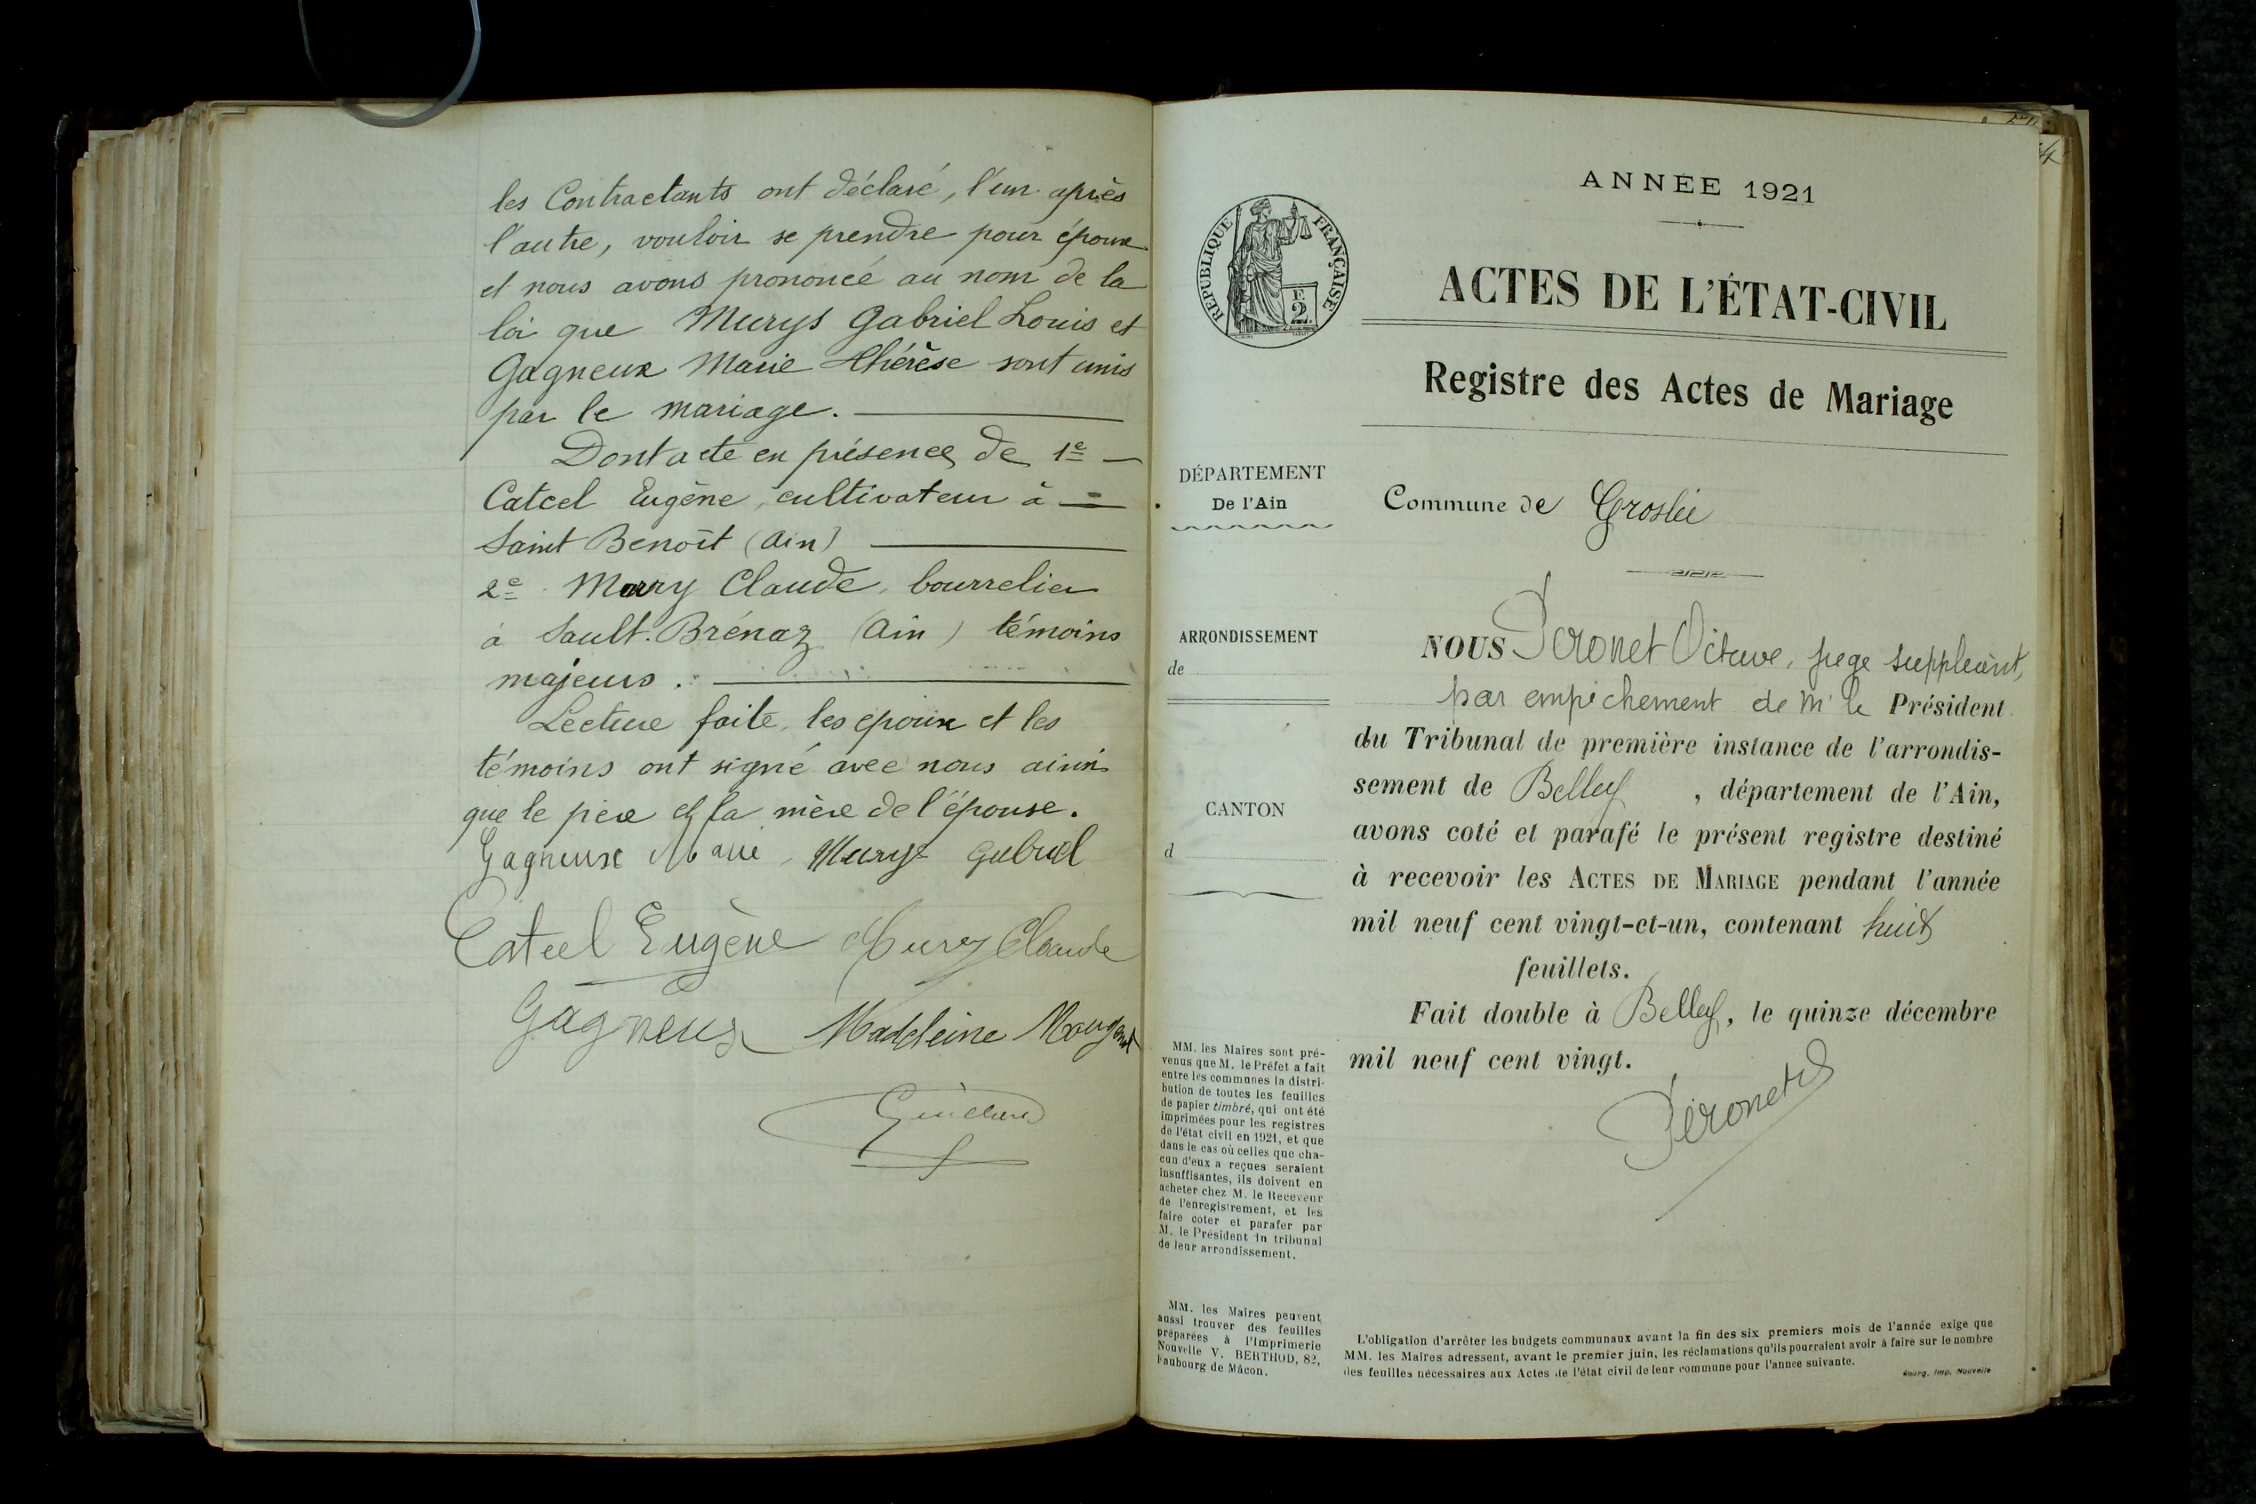 les Contractants ont déclaré, l'un après
l'autre, vouloir se prendre pour époux
et nous avons prononcé au nom de la
loi que Murys Gabriel Louis et
Gagneux Marie Thérèse sont unis
par le mariage.
Dont acte en présence de 1e
Catcel Eugène, cultivateur à
Saint Benoît (Ain)
2e Mury Claude, bourrelier
à Sault-Brénaz (Ain) témoins
majeurs.
Lecture faite, les epoux et les
témoins ont signé avec nous ainsi
que le père et la mère de l'épouse.
Gagneux Marie Murys Gabriel
Catcel Eugène Mury Claude
Gagneux Madeleine
ANNÉE 1921
RÉPUBLIQUE FRANÇAISE
E
2
ACTES DE L'ÉTAT-CIVIL
Registre des Actes de Mariage
DÉPARTEMENT
De l'Ain
Commune de Groslée
ARRONDISSEMENT
de
CANTON
d
NOUS Péronet Octave, juge suppléant,
par empêchement de Mr le Président
du Tribunal de première instance de l'arrondis-
sement de Belley , département de l'Ain,
avons coté et parafé le présent registre destiné
à recevoir les ACTES DE MARIAGE pendant l'année
mil neuf cent vingt-et-un, contenant huit
feuillets.
Fait double à Belley, le quinze décembre
mil neuf cent vingt.
Péronet
MM. les Maires sont pré-
venus que M. le Préfet a fait
entre les communes la distri-
bution de toutes les feuilles
de papier timbré, qui ont été
imprimées pour les registres
de l'état civil en 1921, et que
dans le cas où celles que cha-
cun d'eux a reçues seraient
insuffisantes, ils doivent en
acheter chez M. le Receveur
de l'enregistrement, et les
faire coter et parafer par
M. le Président du tribunal
de leur arrondissement.
MM. les Maires peuvent
aussi trouver des feuilles
préparées à l'Imprimerie
Nouvelle V. BERTHOD, 82,
Faubourg de Mâcon.
L'obligation d'arrêter les budgets communaux avant la fin des six premiers mois de l'année exige que
MM. les Maires adressent, avant le premier juin, les réclamations qu'ils pourraient avoir à faire sur le nombre
des feuilles nécessaires aux Actes de l'état civil de leur commune pour l'année suivante.
Bourg, Imp. Nouvelle